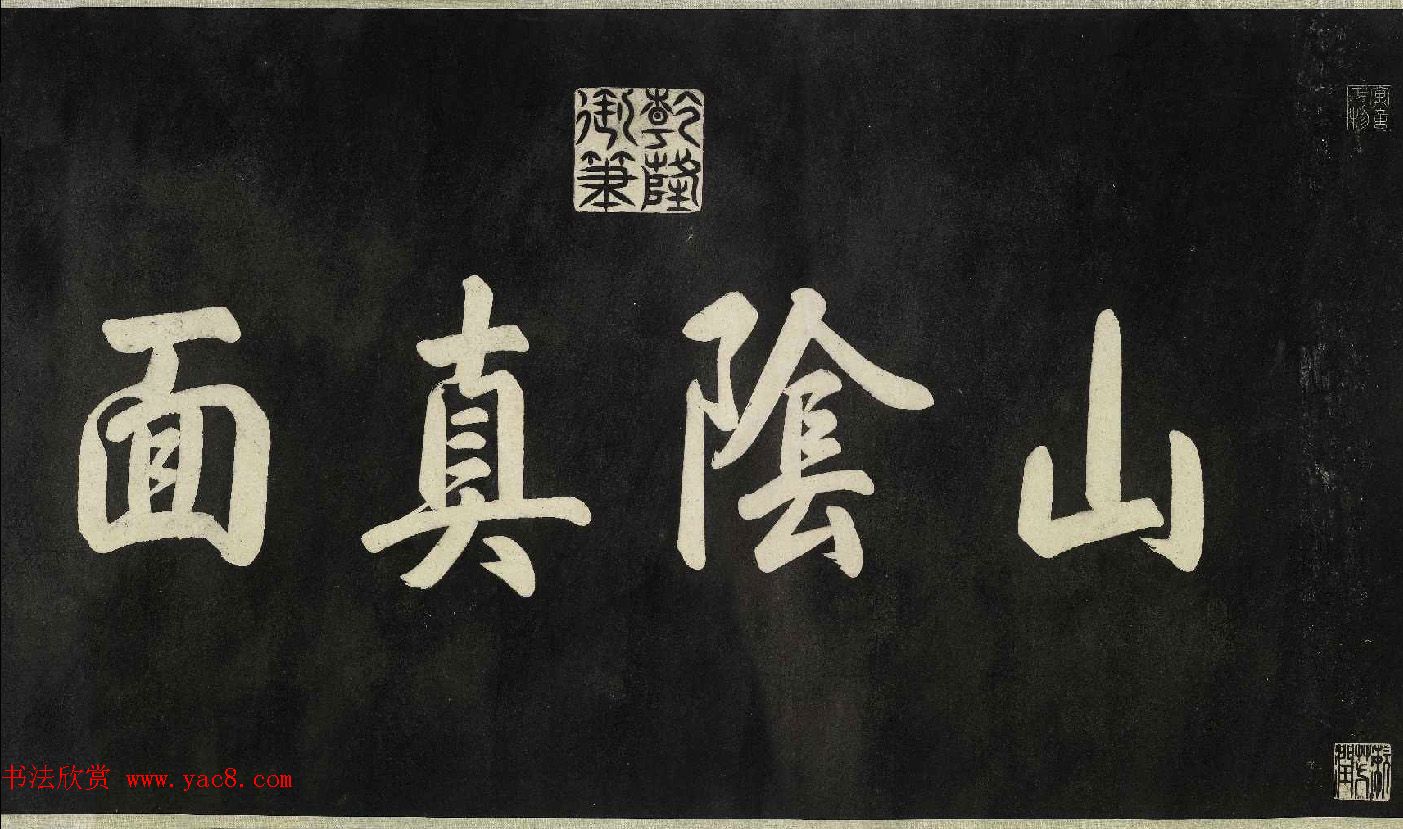 山陰真面
乾隆
御筆
书法欣赏 www.yac8.com